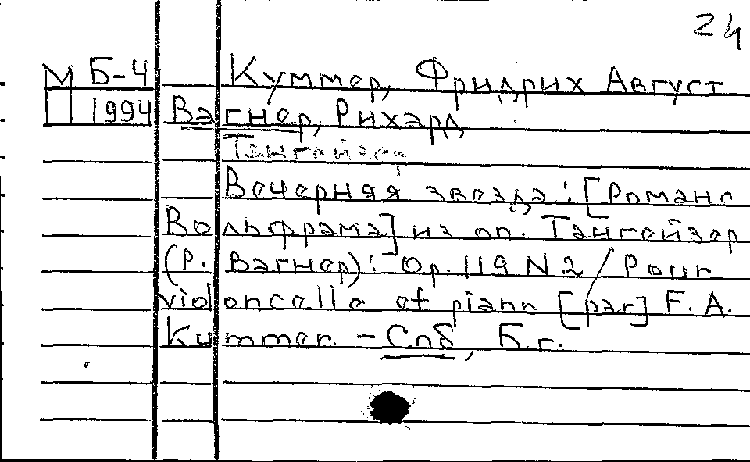 24
М Б-4 Куммер, Фридрих Август
П 1994 Вагнер, Рихард
Тангейзер
Вечерняя звезда: [Романс
Вольфрама] из оп. Тангейзер
(Р. Вагнер): Op. 119 N 2 / Pour
violoncelle et piano [par] F. A.
Kummer. – Спб, Б.г.